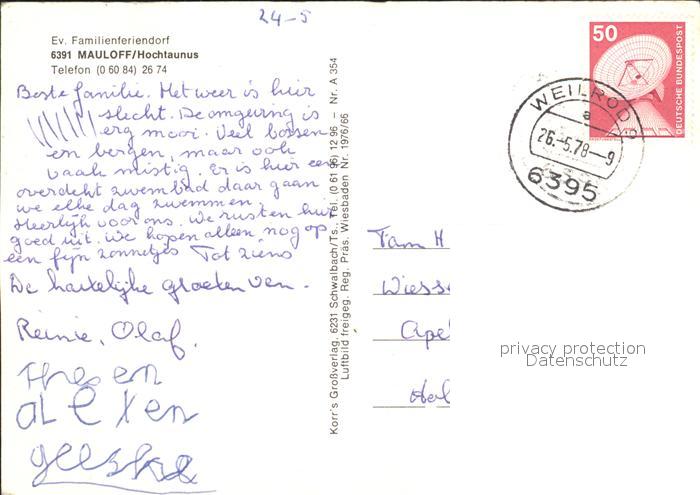 24-5
Ev. Familienferiendorf
6391 MAULOFF/Hochtaunus
Telefon (0 60 84) 26 74
Beste familie. Het weer is hier
slecht. De omgeving is
erg mooi. Veel bossen
en bergen, maar ook
vaak mistig. Er is hier een
overdekt zwembad daar gaan
we elke dag zwemmen.
Heerlijk voor ons. We rusten hier
goed uit. We hopen alleen nog op
een fijn zonnetje. Tot ziens
De hartelijke groeten van.
Reinie, Olaf,
en
aLexen
geeske
Korr's Großverlag, 6231 Schwalbach/Ts., Tel. (0 61 96) 12 96 – Nr. A 354
Luftbild freigeg. Reg. Präs. Wiesbaden Nr. 1976/66
50
DEUTSCHE BUNDESPOST
WEILROD
a
26.-5.78--9
6395
Fam H
Wiess
Apel
privacy protection
Datenschutz